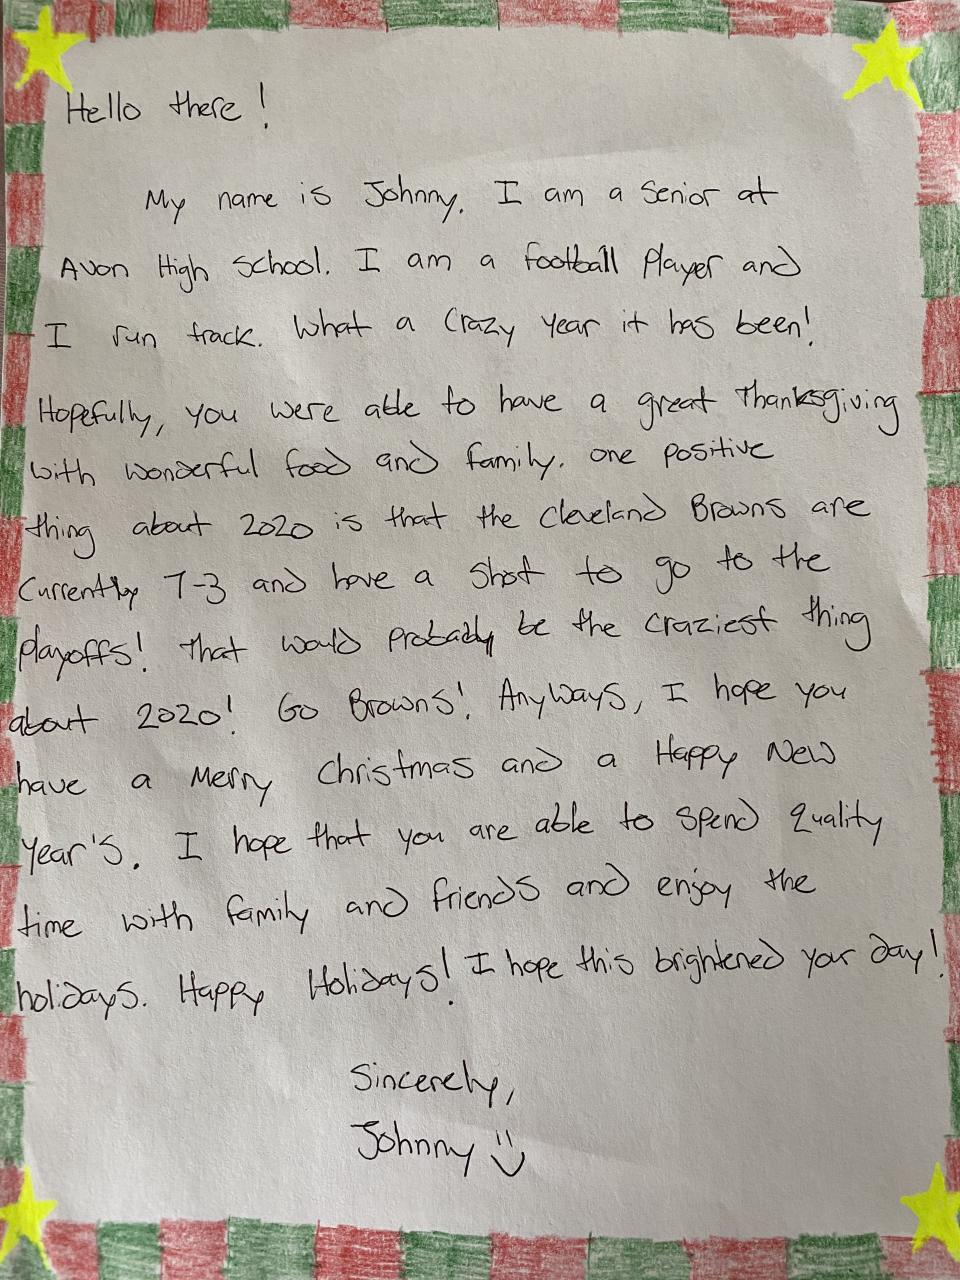 Hello there!
My name is Johnny. I am a senior at
Avon High School. I am a football player and
I run track. What a crazy year it has been!
Hopefully, you were able to have a great Thanksgiving
with wonderful food and family. one positive
thing about 2020 is that the Cleveland Browns are
currently 7-3 and have a shot to go to the
playoffs! That would probably be the craziest thing
about 2020! Go Browns! Anyways, I hope you
have a Merry Christmas and a Happy New
Year's. I hope that you are able to spend quality
time with family and friends and enjoy the
holidays. Happy Holidays! I hope this brightened your day!
Sincerely,
Johnny